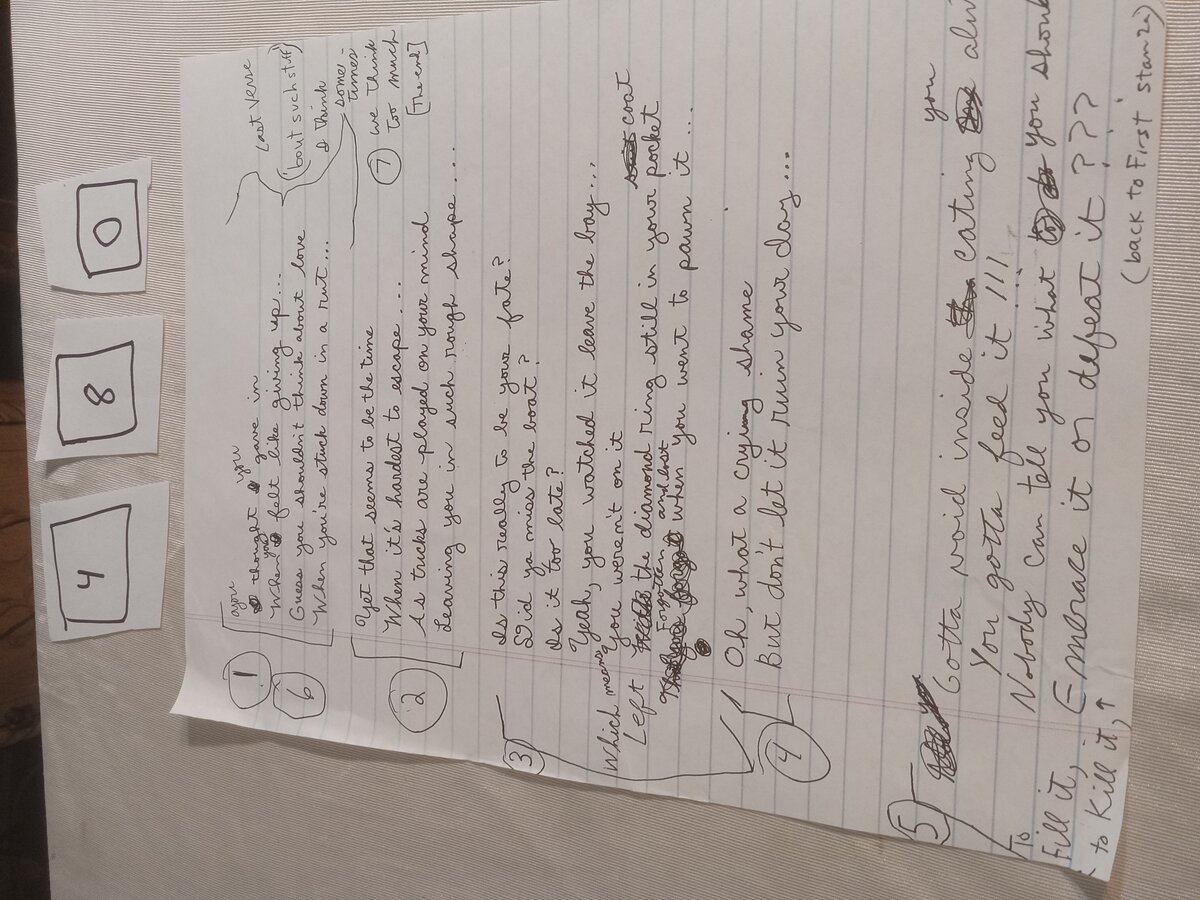 4
8
0
you you
① thought gave in
⑥ When you felt like giving up...
Guess you shouldn't think about love
When you're stuck down in a rut...
Last verse
('bout such stuff)
I think
some-
times
⑦ we think
too much
[The end]
② Yet that seems to be the time
When it's hardest to escape...
As tricks are played on your mind
Leaving you in such rough shape...
③ Is this really to be your fate?
Did ya miss the boat?
Is it too late?
Yeah, you watched it leave the bay...
Which means you weren't on it
coat
Left the diamond ring still in your pocket
Forgotten and lost
when you went to pawn it...
④ Oh, what a crying shame
But don't let it ruin your day...
you
⑤ Gotta void inside eating aliv
You gotta feed it!!!
Nobody can tell you what you shoul
To
Fill it, Embrace it or defeat it???
to Kill it,↑
(back to First stanza)